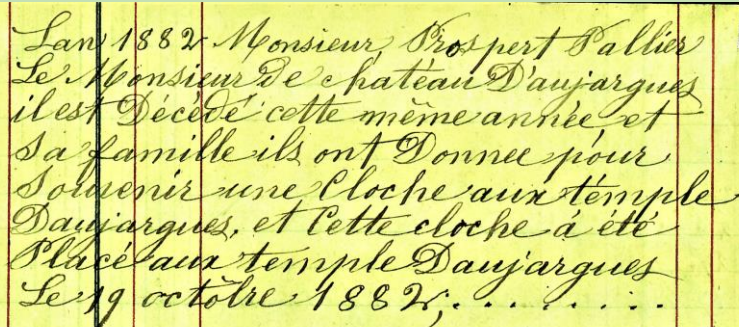 Lan 1882 Monsieur, Prospert Pallier
Le Monsieur de chatéau D'aujargues
il est Décédé cette même année, et
Sa famille ils ont Donnee pour
Souvenir une Cloche aux témple
Daujargues, et Cette cloche á été
Placé aux temple Daujargues
Le 19 octôbre 1882,. . . . . . . .